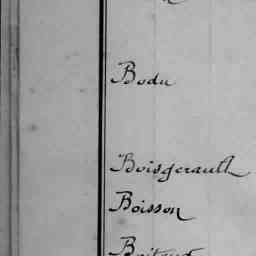 Bodu
Boisgerault
Boisson